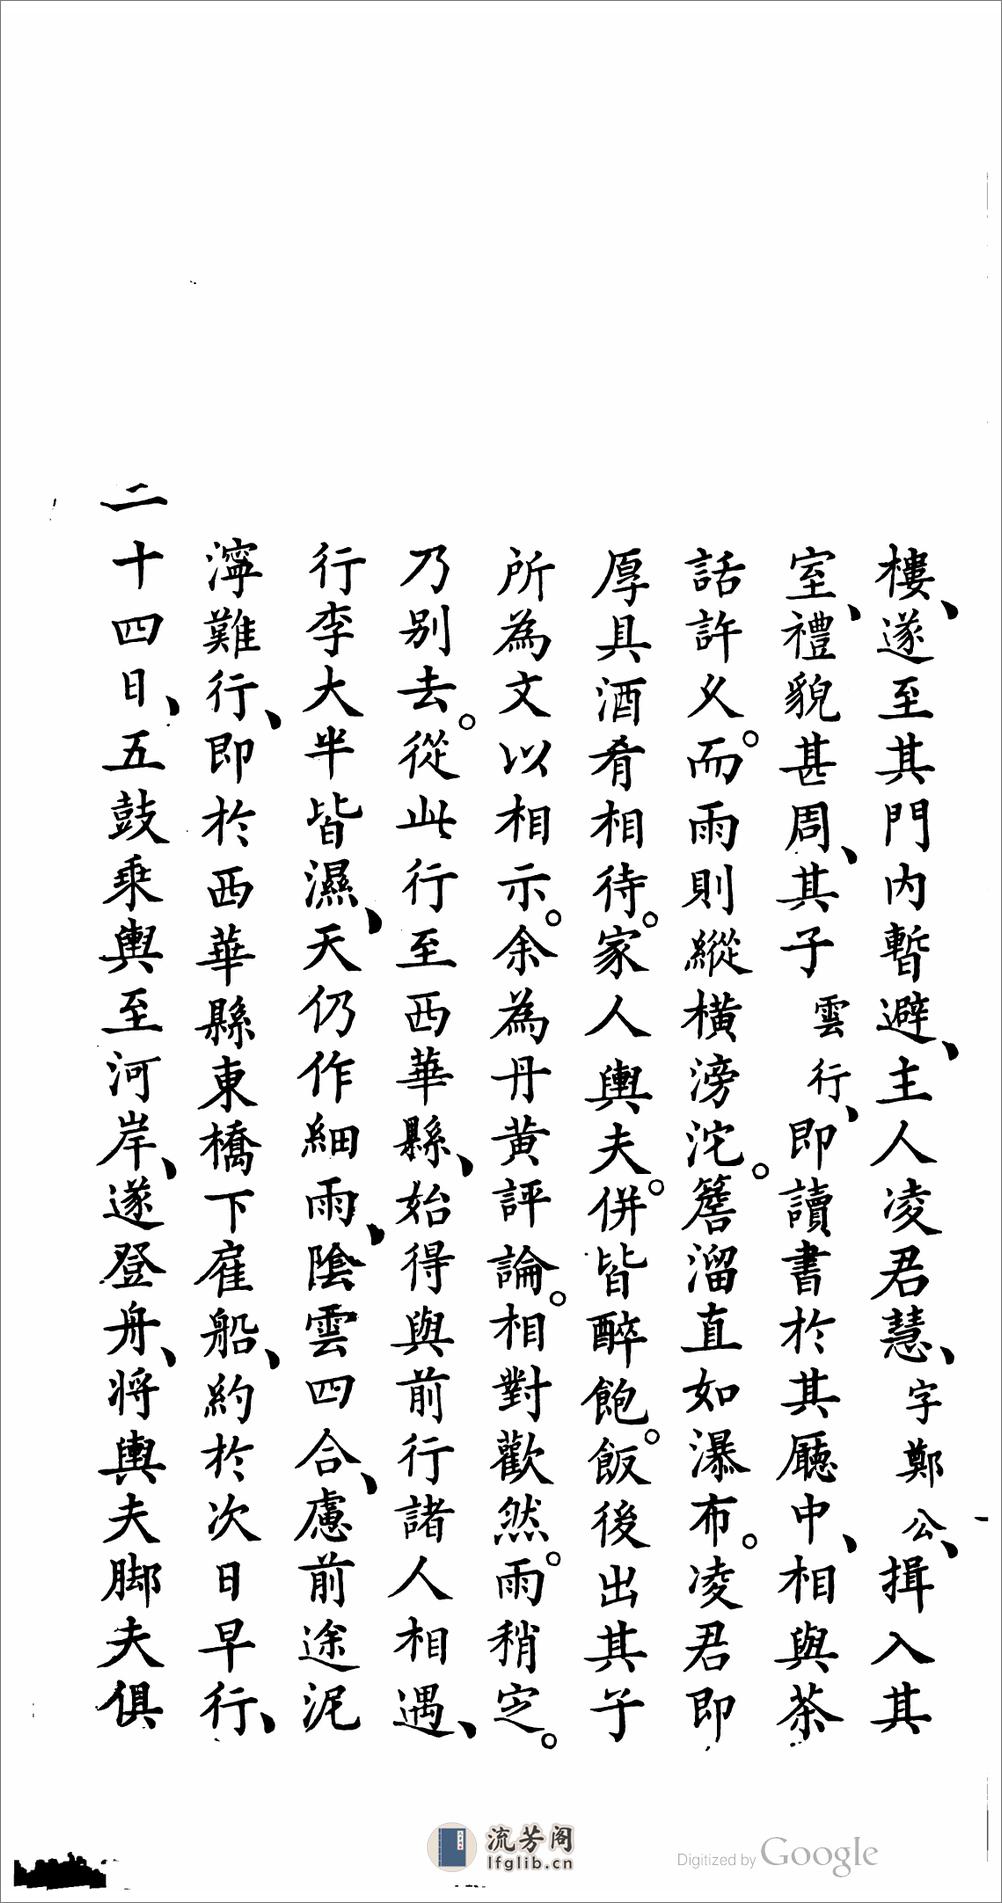 樓、遂至其門內暫避、主人凌君慧、字鄭公、揖入其
室、禮貌甚周、其子雲行、即讀書於其廳中、相與茶
話許久。而雨則縱橫滂沱。簷溜直如瀑布。凌君即
厚具酒肴相待。家人輿夫。併皆醉飽。飯後出其子
所為文以相示。余為丹黄評論。相對歡然。雨稍定。
乃别去。從此行至西華縣、始得與前行諸人相遇、
行李大半皆濕、天仍作細雨、陰雲四合、慮前途泥
濘難行、即於西華縣東橋下雇船、約於次日早行、
二十四日、五鼓乘輿至河岸、遂登舟、將輿夫脚夫俱
流芳阁
lfglib.cn
Digitized by Google